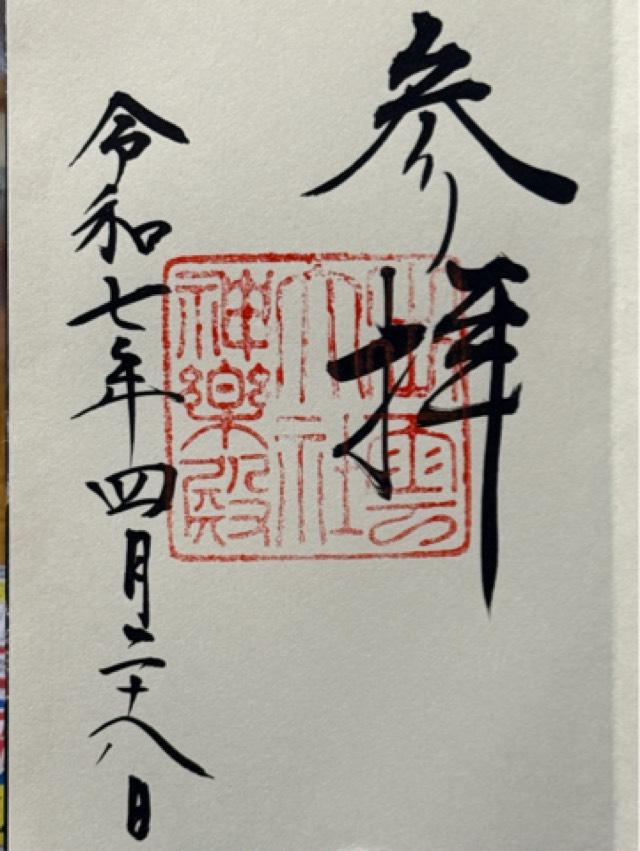 参拝
出雲
大社
神楽殿
令和七年四月二十八日